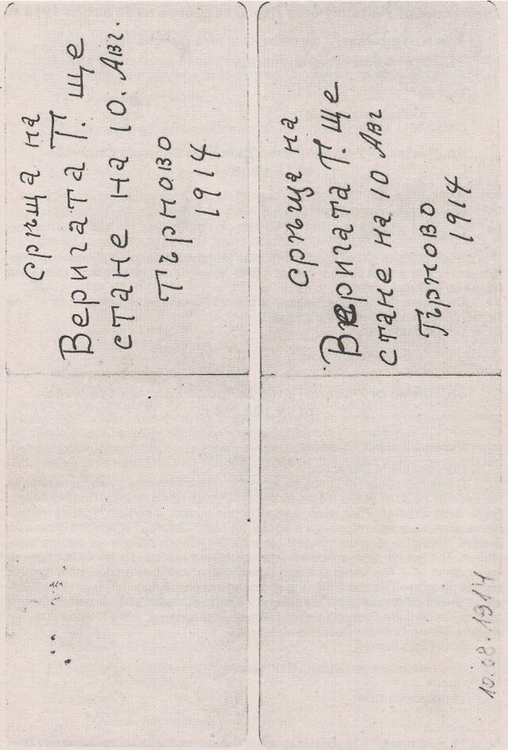 срѣща на
Веригата Т. ще
стане на 10. Авг.
Търново
1914
срѣща на
Веригата Т. ще
стане на 10 Авг
Търново
1914
10.08.1914